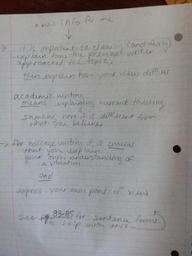 new info for me
→ it is important to clearly (and fairly)
explain how the previous writer
approached the topic,
then explain how your view differs
academic writing
means explaining current thinking
showing how it is different from
what you believe
→ For college writing it is crucial
that you explain
your own understanding of
a situation
and
express your own point of view
see 83-85 for sentence forms
to help with this